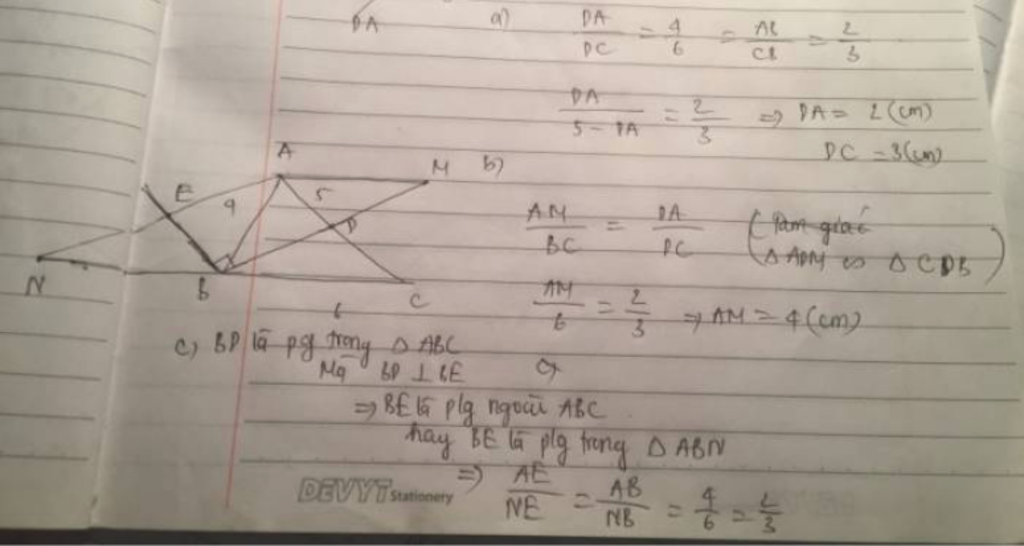 DA
a) DA/DC = 4/6 = AB/CB = 2/3
DA/(5 - DA) = 2/3 => DA = 2 (cm)
DC = 3 (cm)
A
M
E
4
5
D
N
B
C
6
b)
AM/BC = DA/DC (Tam giác
Δ ADM ∽ Δ CDB)
AM/6 = 2/3 => AM = 4 (cm)
c) BD là p/g trong Δ ABC
Mà BD ⊥ BE
=> BE là p/g ngoài ABC
hay BE là p/g trong Δ ABN
=> AE/NE = AB/NB = 4/6 = 2/3
DEVYT Stationery